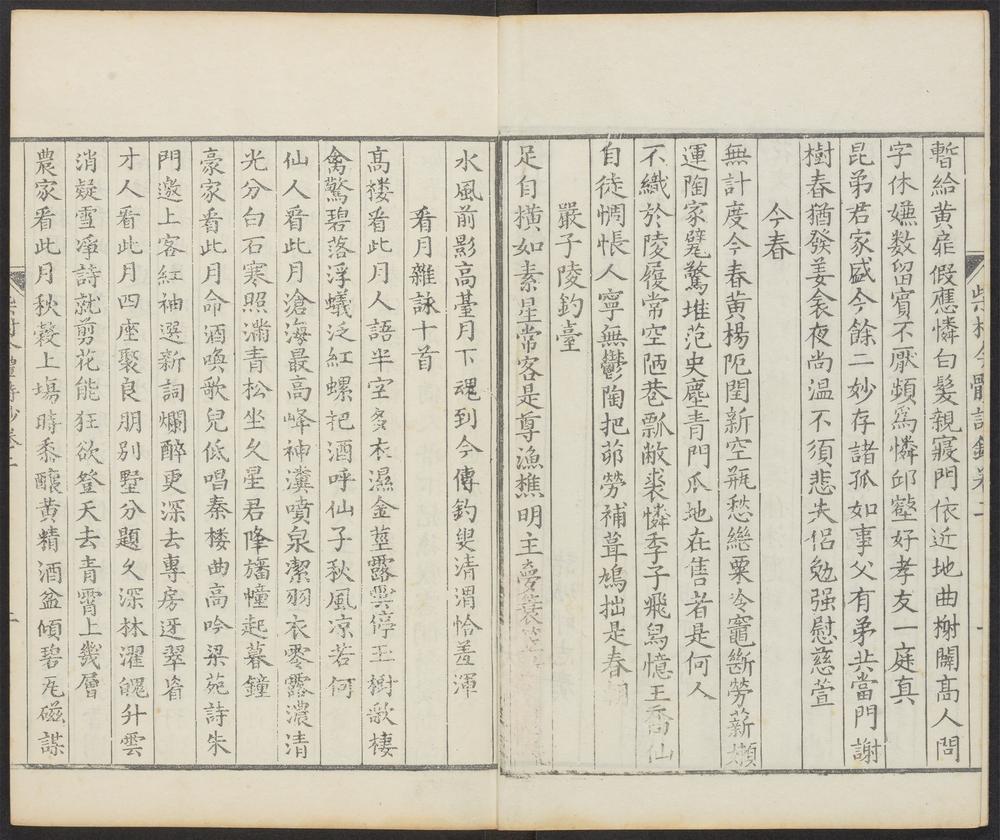 暫給黃扉假應憐白髮親寢門依近地曲榭闢高人問
字休嫌数留賓不厭頻爲憐邱壑好孝友一庭真
昆弟君家盛今餘二妙存諸孤如事父有弟共當門謝
樹春猶發姜衾夜尚温不須悲失侣勉强慰慈萱
今春
無計度今春黃楊阨閏新空瓶愁繐粟冷竈斷勞薪嬾
運陶家甓驚堆范史塵青門瓜地在售者是何人
不織於陵履常空陋巷瓢敝裘憐季子飛舄憶王喬仙
自徒惆悵人寧無鬱陶把茆勞補葺鳩拙是春
嚴子陵釣臺
足自橫如素星常客是尊漁樵明主夢簑笠
水風前影高臺月下魂到今傳釣叟清渭恰羞渾
看月雜詠十首
高楼看此月人語半空多衣濕金莖露雲停玉樹歌棲
禽驚碧落浮蟻泛紅螺把酒呼仙子秋風凉若何
仙人看此月滄海最高峰神瀵噴泉潔羽衣零露濃清
光分白石寒照滿青松坐久星君降旛幢起暮鐘
豪家看此月命酒喚歌兒低唱秦楼曲高吟梁苑詩朱
門邀上客紅袖選新詞爛醉更深去專房迓翠眉
才人看此月四座聚良朋别墅分題久深林濯魄升雲
消疑雪淨詩就剪花能狂欲登天去青霄上幾層
農家看此月秋穀上塲時黍釀黃精酒盆傾碧瓦磁謀